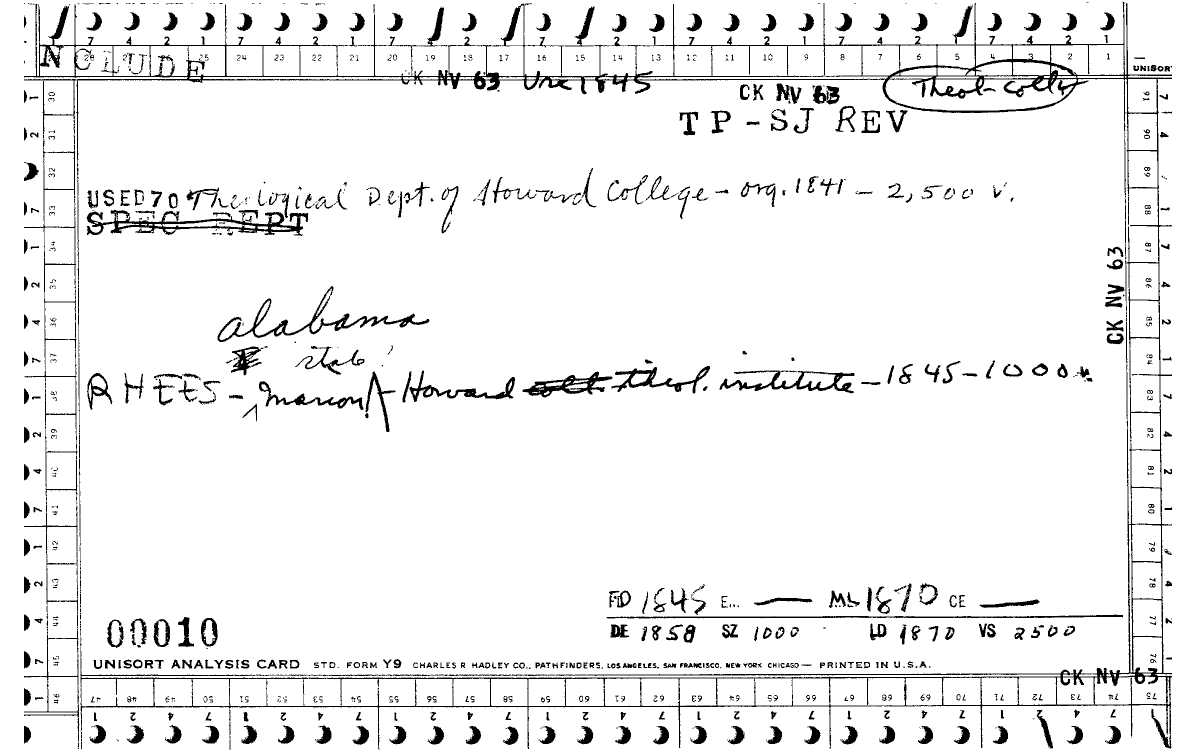 7 4 2 1 7 4 2 1 7 4 2 1 7 4 2 1 7 4 2 1 7 4 2 1 7 4 2 1
NCLUDE 24 23 22 21 20 19 18 17 16 15 14 13 12 11 10 9 8 7 6 5 4 3 2 1
UNISORT
CK NV 63 Use 1845
CK NV 63
Theol-Coll
TP-SJ REV
USED70 Theological Dept. of Howard College – org. 1841 – 2,500 v.
SPEC REPT
CK NV 63
alabama
state
RHEES – Marion – Howard coll. theol. institute – 1845 – 1000 v.
FD 1845 E... — ML 1870 CE —
DE 1858 SZ 1000 LD 1870 VS 2500
00010
UNISORT ANALYSIS CARD STD. FORM Y9 CHARLES R HADLEY CO., PATHFINDERS, LOS ANGELES, SAN FRANCISCO, NEW YORK CHICAGO — PRINTED IN U.S.A.
CK NV 63
47 48 49 50 51 52 53 54 55 56 57 58 59 60 61 62 63 64 65 66 67 68 69 70 71 72 73 74 75
1 2 4 7 1 2 4 7 1 2 4 7 1 2 4 7 1 2 4 7 1 2 4 7 1 2 4 7